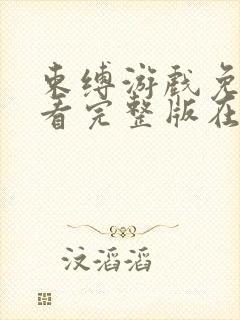 束缚游戏免
看完整版在
汶滔滔